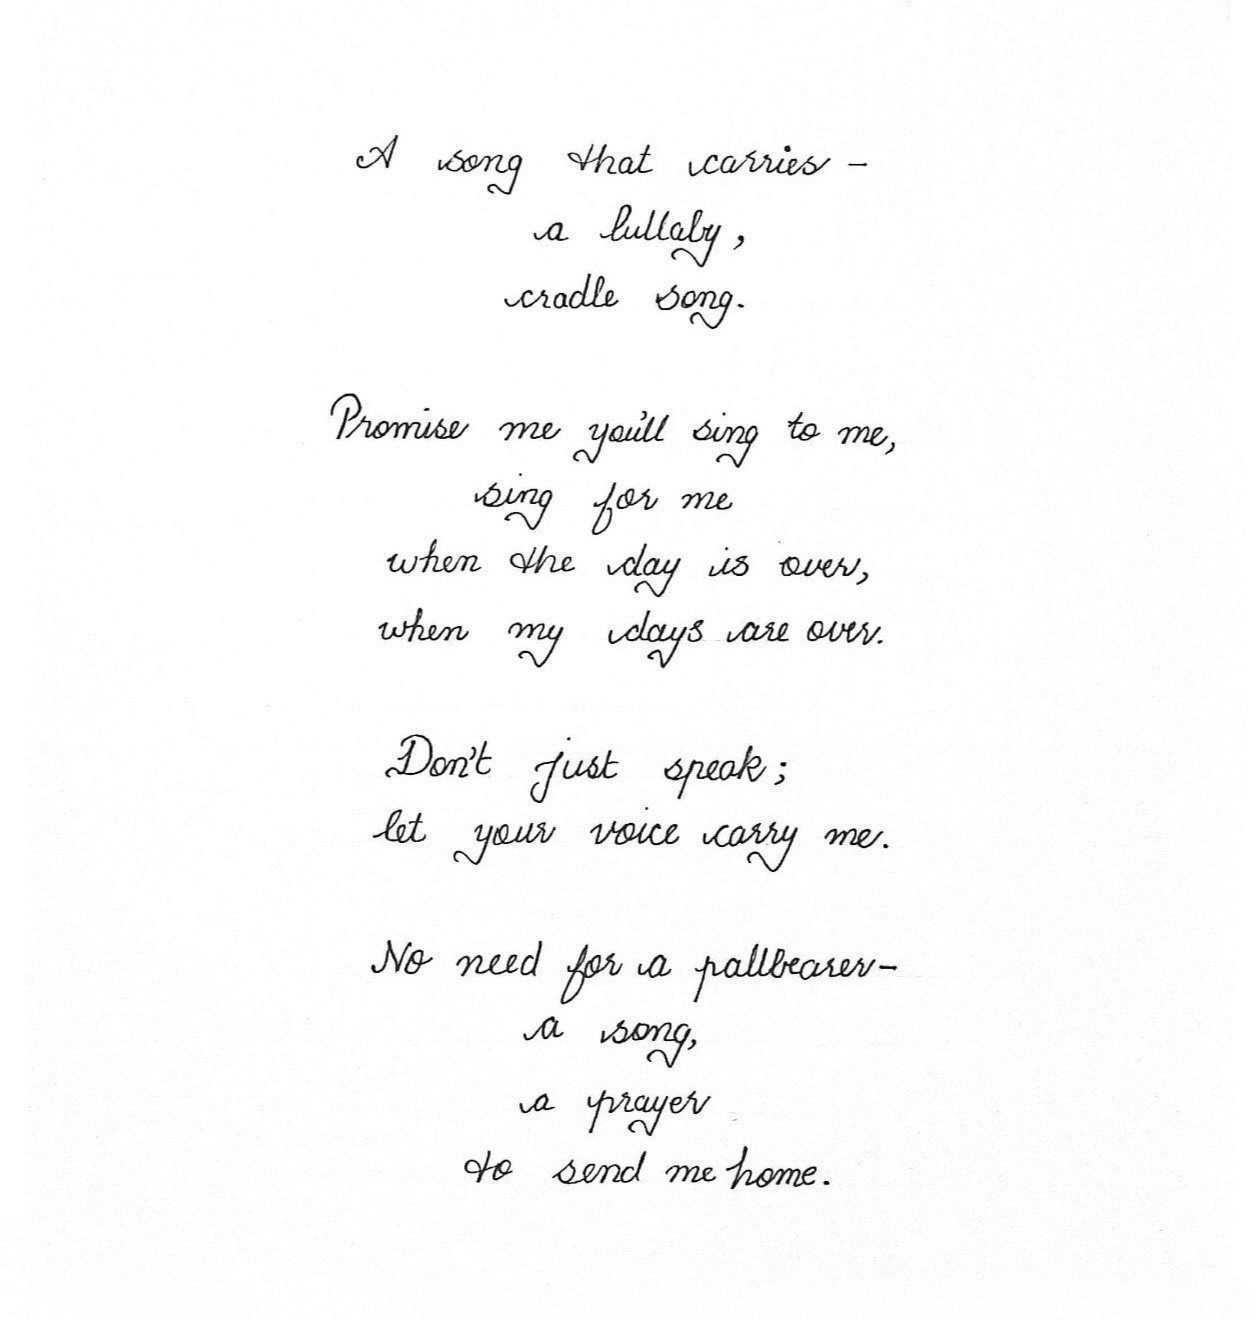 A song that carries –
a lullaby,
cradle song.
Promise me you'll sing to me,
sing for me
when the day is over,
when my days are over.
Don't just speak;
let your voice carry me.
No need for a pallbearer–
a song,
a prayer
to send me home.